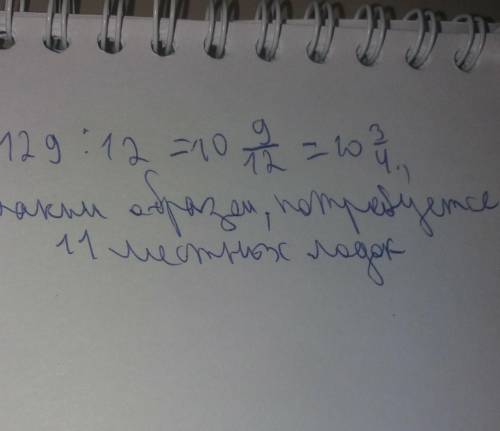 129 : 12 = 10 9/12 = 10 3/4.,
таким образом, потребуется
11 местных лодок